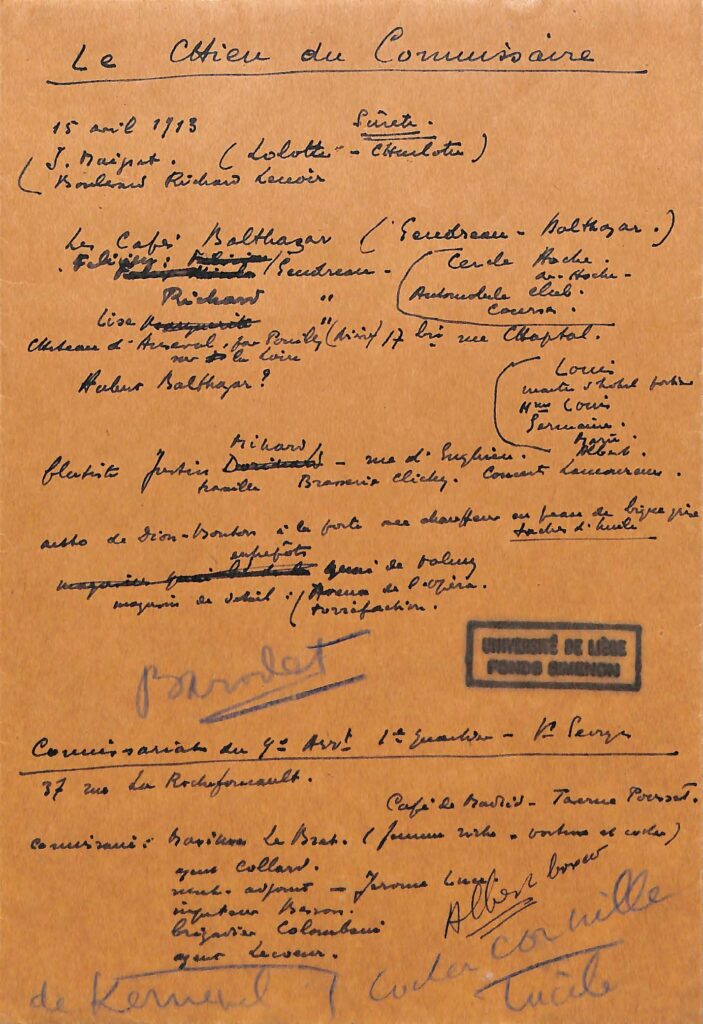 Le Chien du Commissaire
15 avril 1913 Sûreté.
(J. Maigret. (Lolotte - Charlotte)
(Boulevard Richard Lenoir
Les Cafés Balthazar (Gendreau - Balthazar.)
Félicien / Gendreau - Cercle Hoche.
av. Hoche -
Richard " Automobile Club.
Courses.
Lise Marguerite " (Divine) 17 bis rue Chaptal.
Chateau d'Anseval, par Pouilly
sur la Loire
Hubert Balthazar? Louis
maitre d'hotel
Mme Louis
Germaine.
Marie.
Albert.
Minard
flutiste Justin - rue d'Enghien.
travaille Brasserie Clichy. Concert Lamoureux.
auto de Dion-Bouton à la porte avec chauffeur en peau de bique grise
taches d'huile
entrepôts
magasins quai de Valmy
magasin de détail : (Avenue de l'Opéra.
torréfaction.
Barodet
UNIVERSITÉ DE LIÈGE
FONDS SIMENON
Commissariat du 9e Arrt 1er Quartier - St Georges
37 rue La Rochefoucault.
Café de Madrid - Taverne Pousset.
Commissaire: Maxime Le Bret. (femme riche - voiture et cocher)
agent Collard.
adjoint -
inspecteur Besson.
brigadier Colombani
agent Lecoeur.
Albert boxeur
cocher cornille
de Kernevel / Lucile